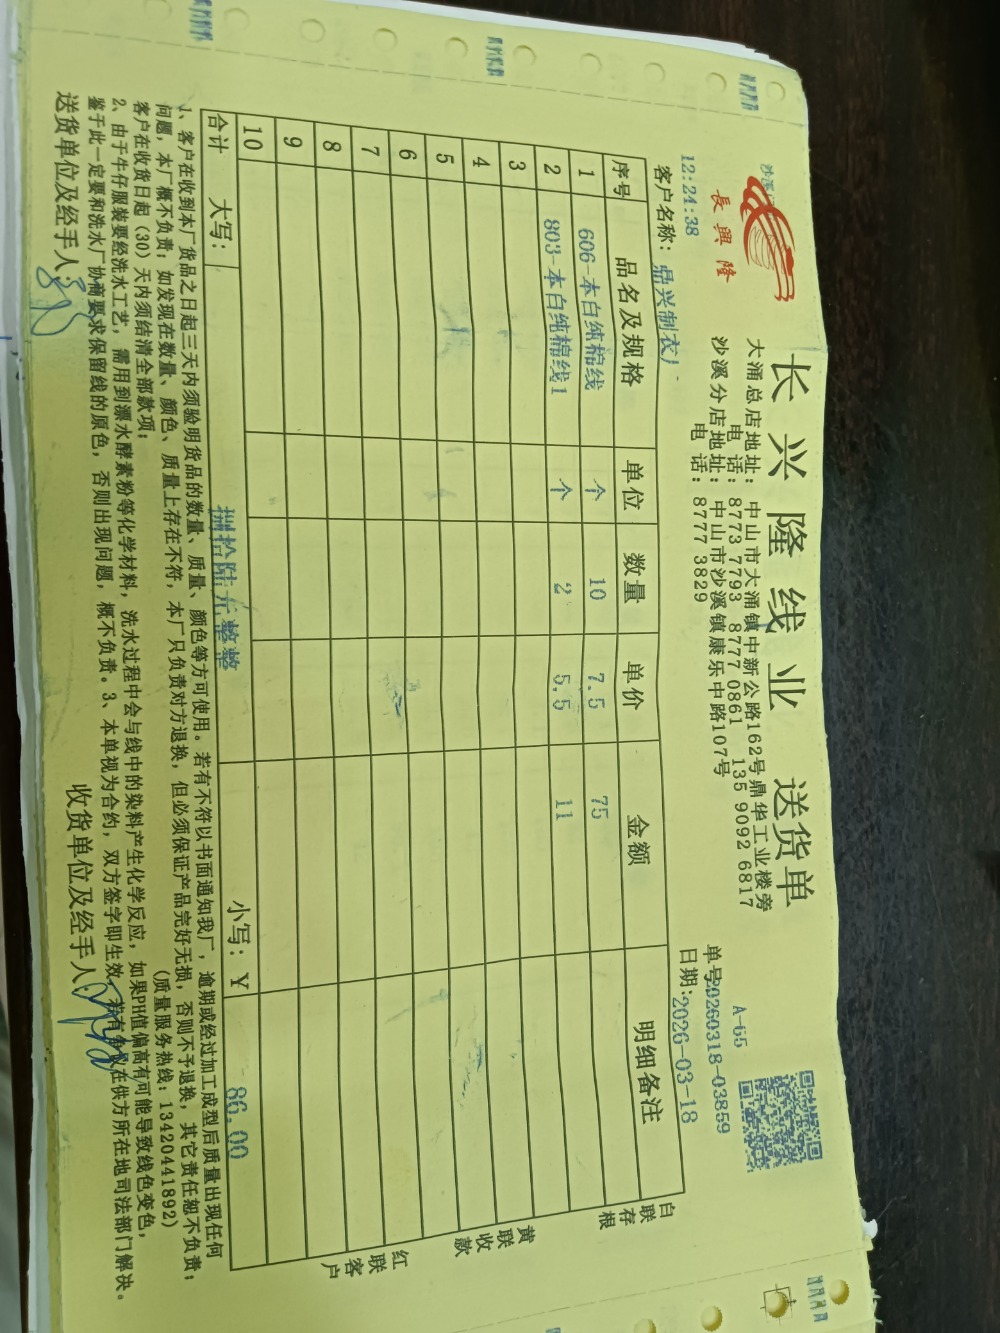 沙溪
長興隆
长兴隆线业 送货单
A-65
大涌总店地址：中山市大涌镇中新公路162号鼎华工业楼旁
电话：8773 7793 8777 0861 135 9092 6817
沙溪分店地址：中山市沙溪镇康乐中路107号
电话：8777 3829
单号20260318-03859
12:24:38
日期：2026-03-18
客户名称：鼎兴制衣厂
序号 品名及规格 单位 数量 单价 金额 明细备注
1 606-本白纯棉线 个 10 7.5 75
2 803-本白纯棉线1 个 2 5.5 11
3
4
5
6
7
8
9
10
合计 大写：捌拾陆元整整 小写：￥ 86.00
白联存根
黄联收款
红联客户
1、客户在收到本厂货品之日起三天内须验明货品的数量、质量、颜色等方可使用。若有不符以书面通知我厂，逾期或经过加工成型后质量出现任何
问题，本厂概不负责；如发现在数量、颜色、质量上存在不符，本厂只负责对方退换，但必须保证产品完好无损，否则不予退换，其它责任恕不负责；
客户在收货日起（30）天内须结清全部款项；
（质量服务热线：13420441892）
2、由于牛仔服装要经洗水工艺，需用到漂水酵素粉等化学材料，洗水过程中会与线中的染料产生化学反应，如果PH值偏高有可能导致线色变色，
鉴于此一定要和洗水厂协商要求保留线的原色，否则出现问题，概不负责。3、本单视为合约，双方签字即生效，若有争议在供方所在地司法部门解决。
送货单位及经手人：
收货单位及经手人